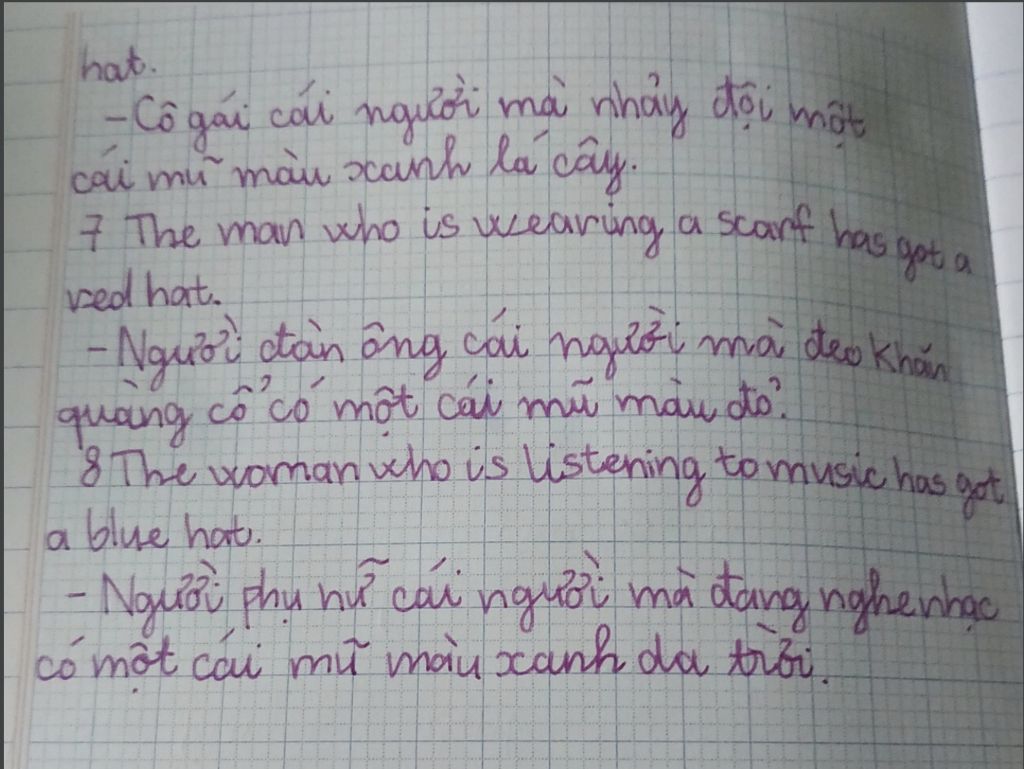 hat.
- Cô gái cái người mà nhảy đội một
cái mũ màu xanh lá cây.
7 The man who is wearing a scarf has got a
red hat.
- Người đàn ông cái người mà đeo khăn
quàng cổ có một cái mũ màu đỏ.
8 The woman who is listening to music has got
a blue hat.
- Người phụ nữ cái người mà đang nghe nhạc
có một cái mũ màu xanh da trời.